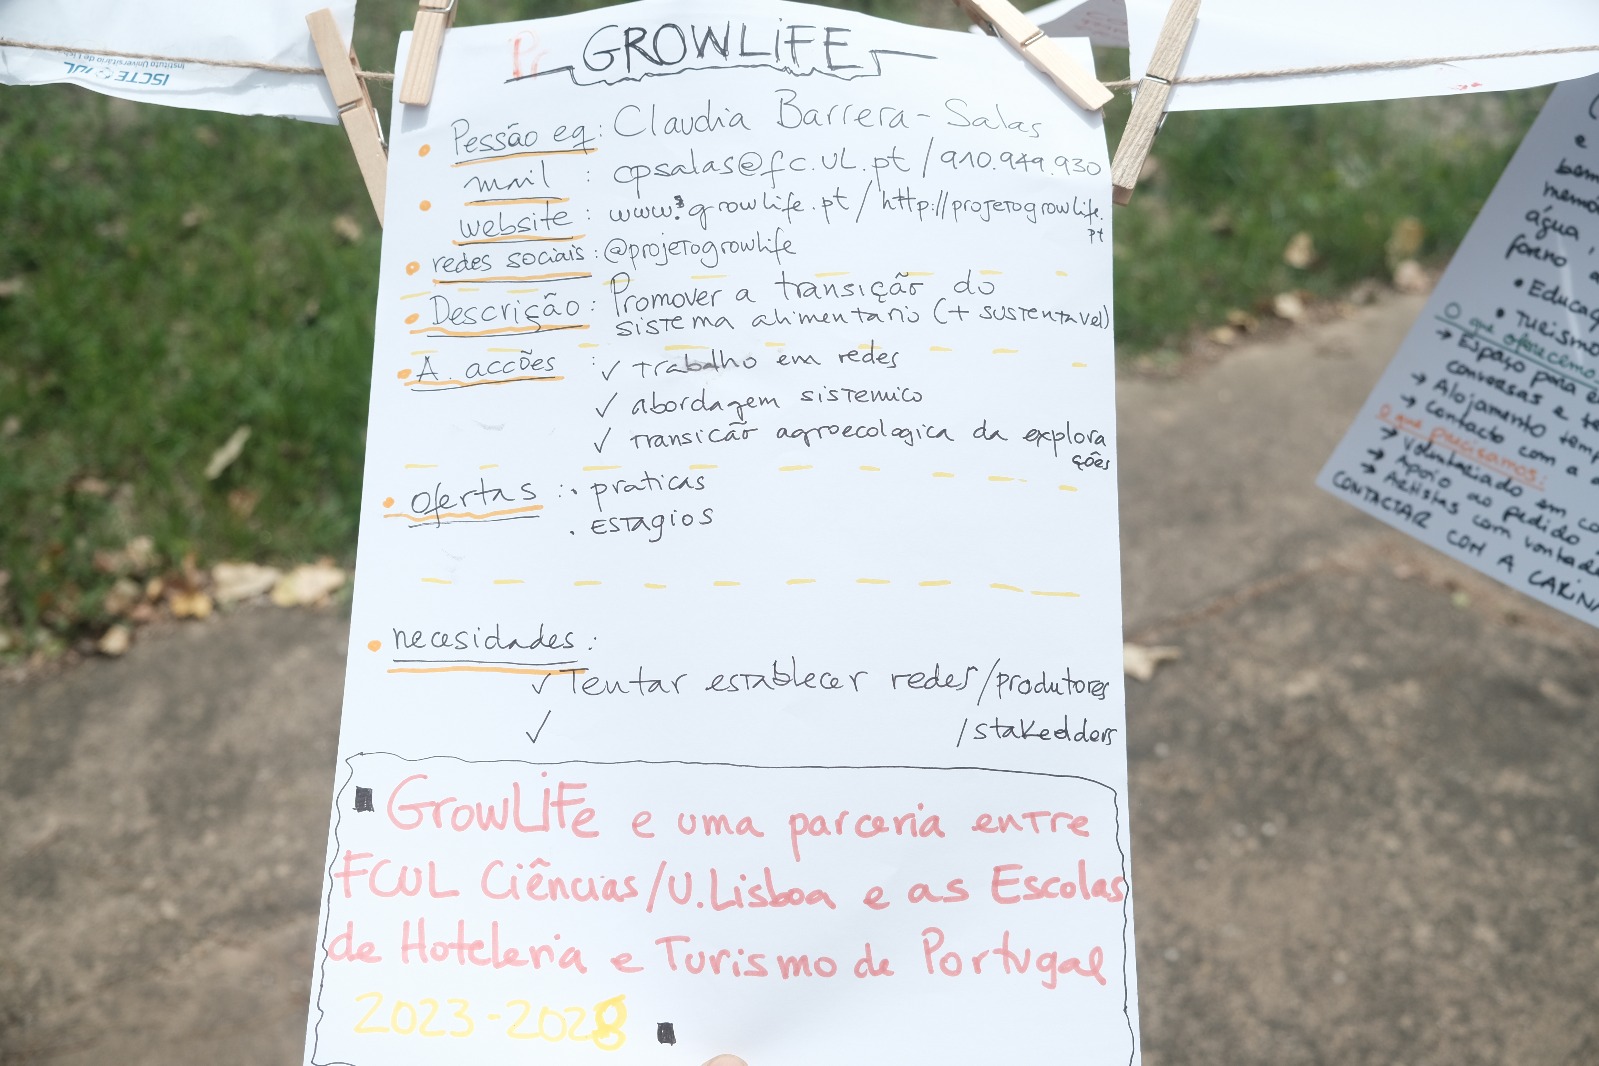 GROWLiFE
Pessão eq: Claudia Barrera-Salas
mail : cpsalas@fc.ul.pt / 910.949.930
website : www.growlife.pt / http://projetogrowlife.
pt
redes sociais : @projetogrowlife
Descrição : Promover a transição do
sistema alimentario (+ sustentavel)
A. accões : ✓ trabalho em redes
✓ abordagem sistemico
✓ transicão agroecologica da explora
ções
ofertas : . praticas
. ESTAgios
necesidades :
✓ Tentar establecer redes/produtores
✓ /stakedders
GrowLiFe e uma parceria entre
FCUL Ciências/U.Lisboa e as Escolas
de Hoteleria e Turismo de Portugal
2023-2028
ISCTE IUL
Instituto Universitário de
e
água,
forno
• Educaç
• Turismo
O que oferecemo
→ Espaço para
conversas e
→ Alojamento temp
→ Contacto com a
O que precisamos:
→ Voluntariado em co
→ Apoio ao pedido
→ Artistas com vontade
CONTACTAR COM A CARINA